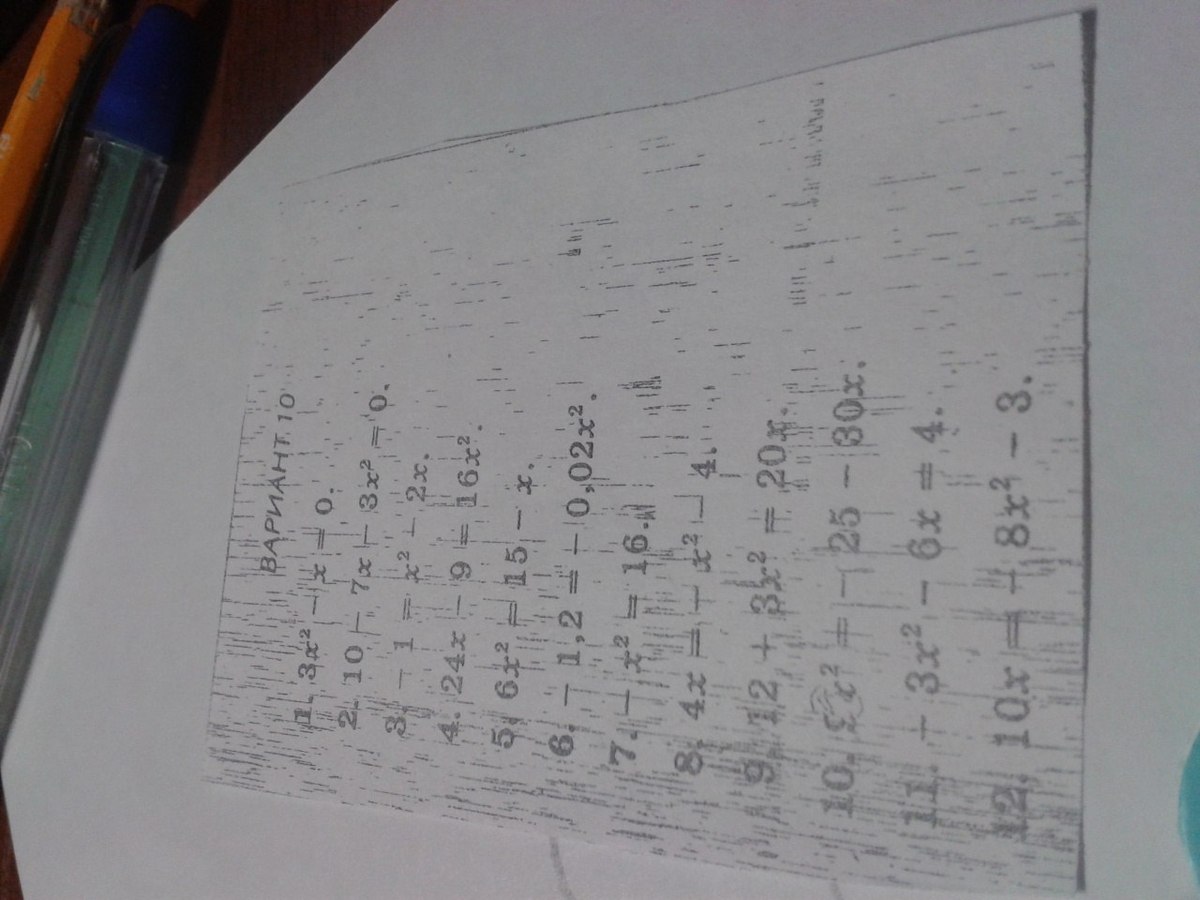 ВАРИАНТ 10
1. 3x² − x = 0.
2. 10 − 7x − 3x² = 0.
3. − 1 = x² − 2x.
4. 24x − 9 = 16x².
5. 6x² = 15 − x.
6. − 1,2 = − 0,02x².
7. − x² = 16.
8. 4x = − x² − 4.
9. 12 + 3x² = 20x.
10. x² = − 25 − 30x.
11. − 3x² − 6x = 4.
12. 10x = − 8x² − 3.